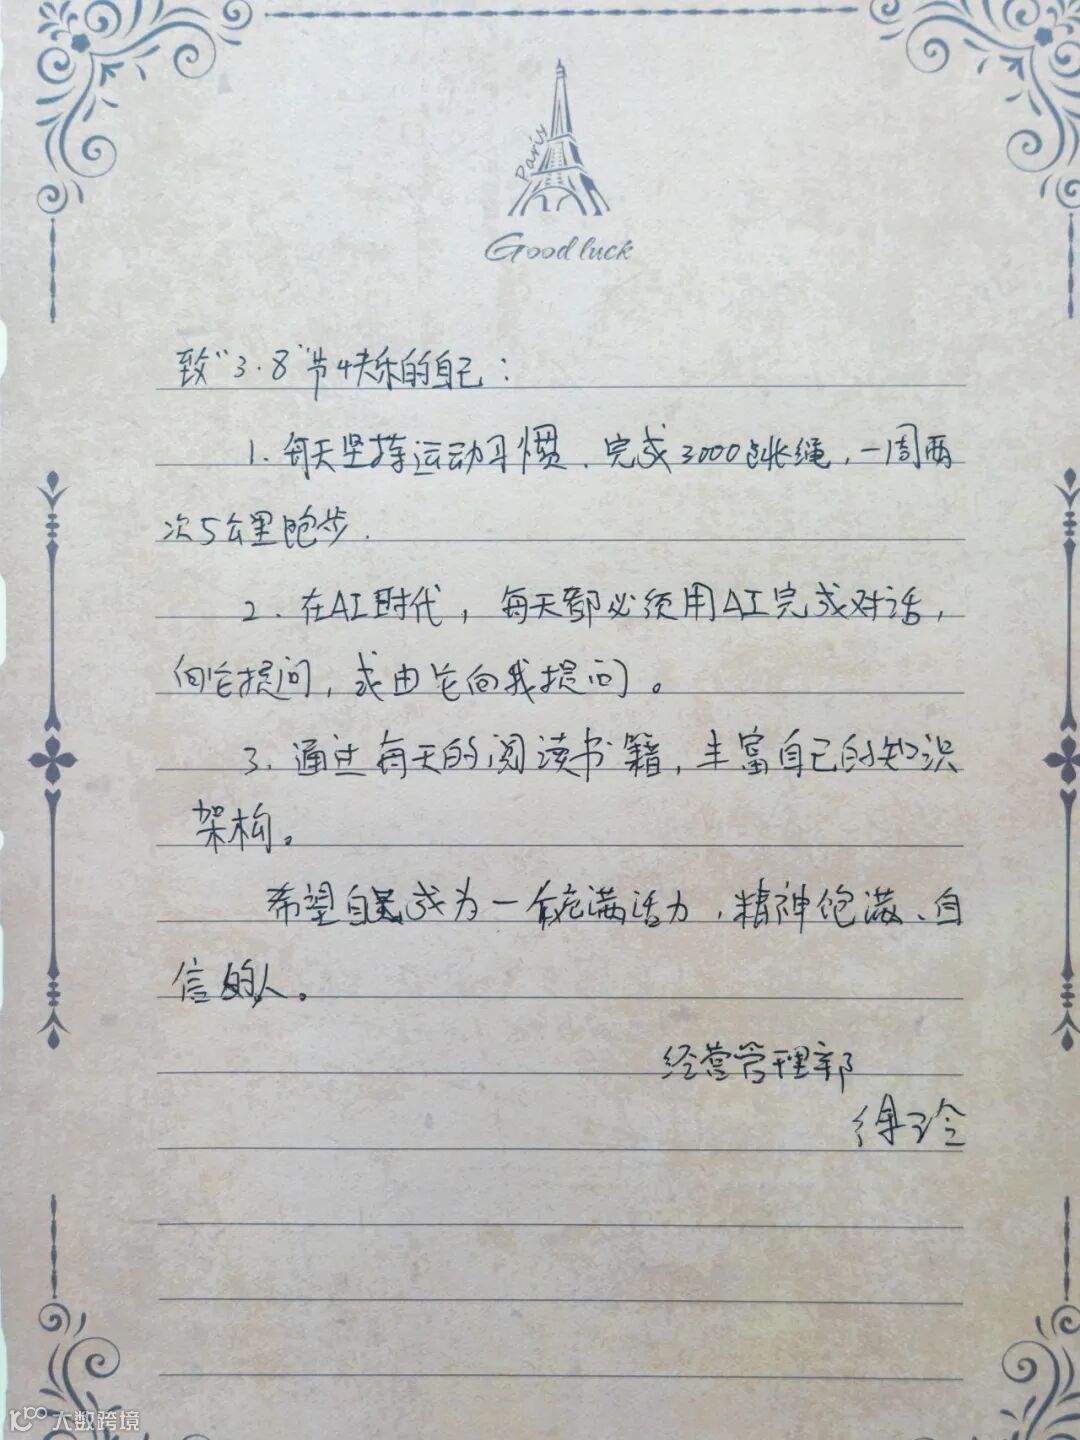 Paris
Good luck
致“3.8”节快乐的自己：
1. 每天坚持运动习惯、完成3000跳绳，一周两
次5公里跑步.
2. 在AI时代，每天都必须用AI完成对话，
向它提问，或由它向我提问。
3. 通过每天的阅读书籍，丰富自己的知识
架构。
希望自己成为一个充满活力，精神饱满、自
信的人。
经营管理部
徐玲
大数跨境